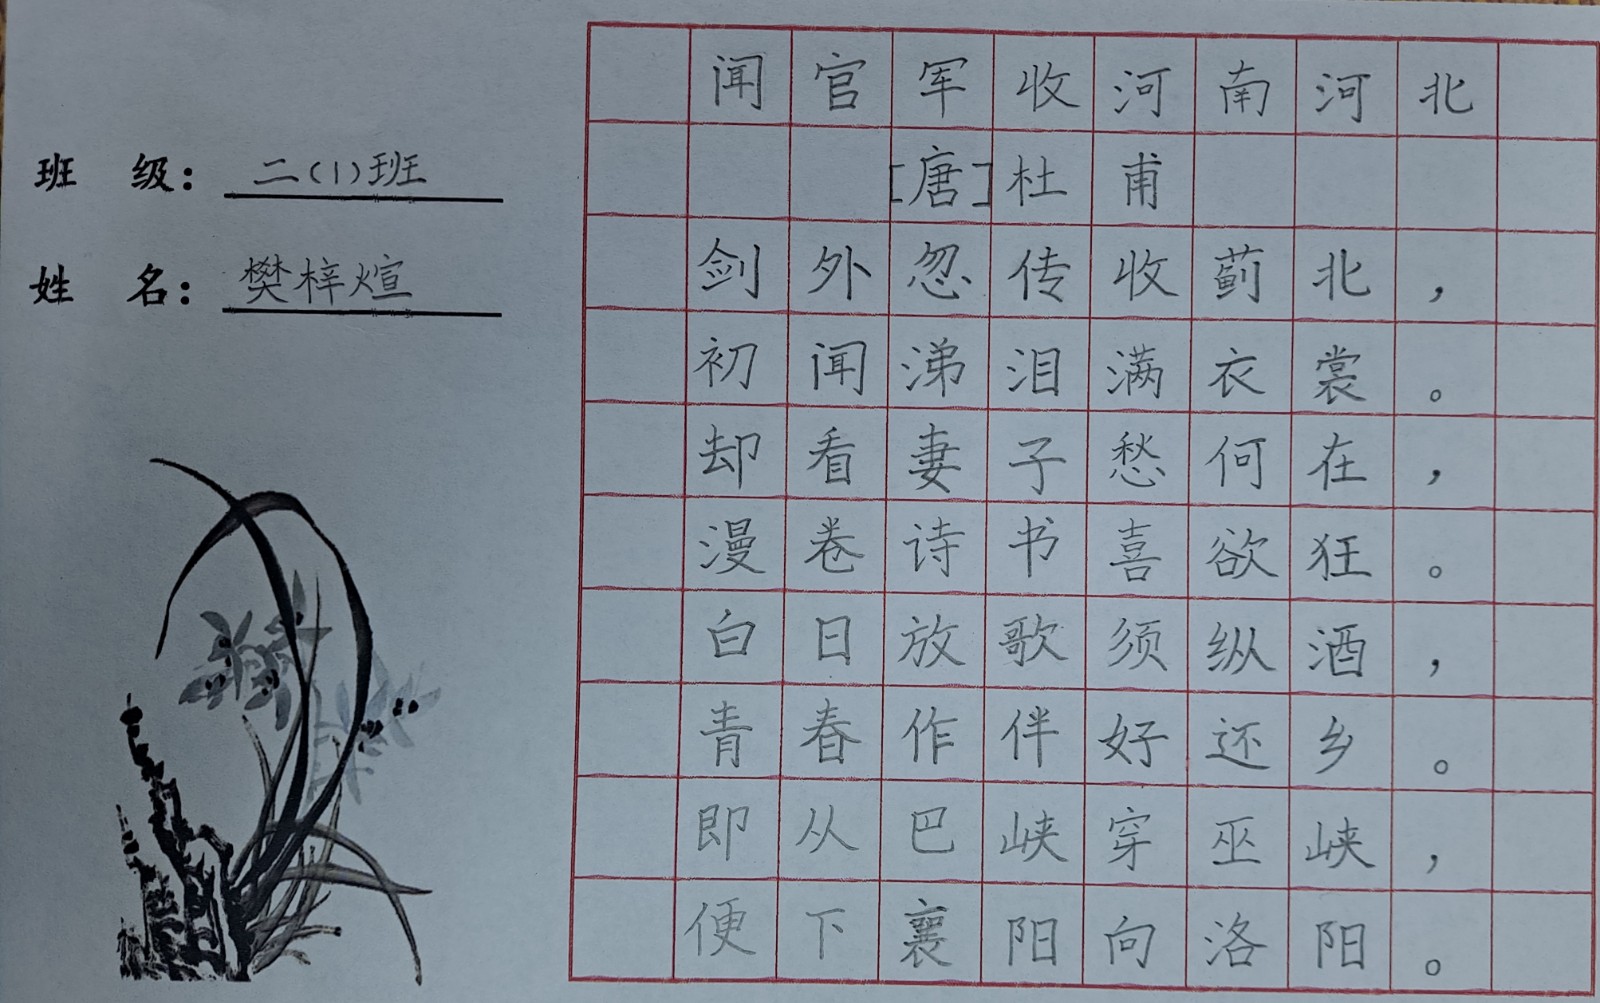 班 级： 二(1)班
姓 名： 樊梓煊
闻官军收河南河北
[唐]杜甫
剑外忽传收蓟北，
初闻涕泪满衣裳。
却看妻子愁何在，
漫卷诗书喜欲狂。
白日放歌须纵酒，
青春作伴好还乡。
即从巴峡穿巫峡，
便下襄阳向洛阳。